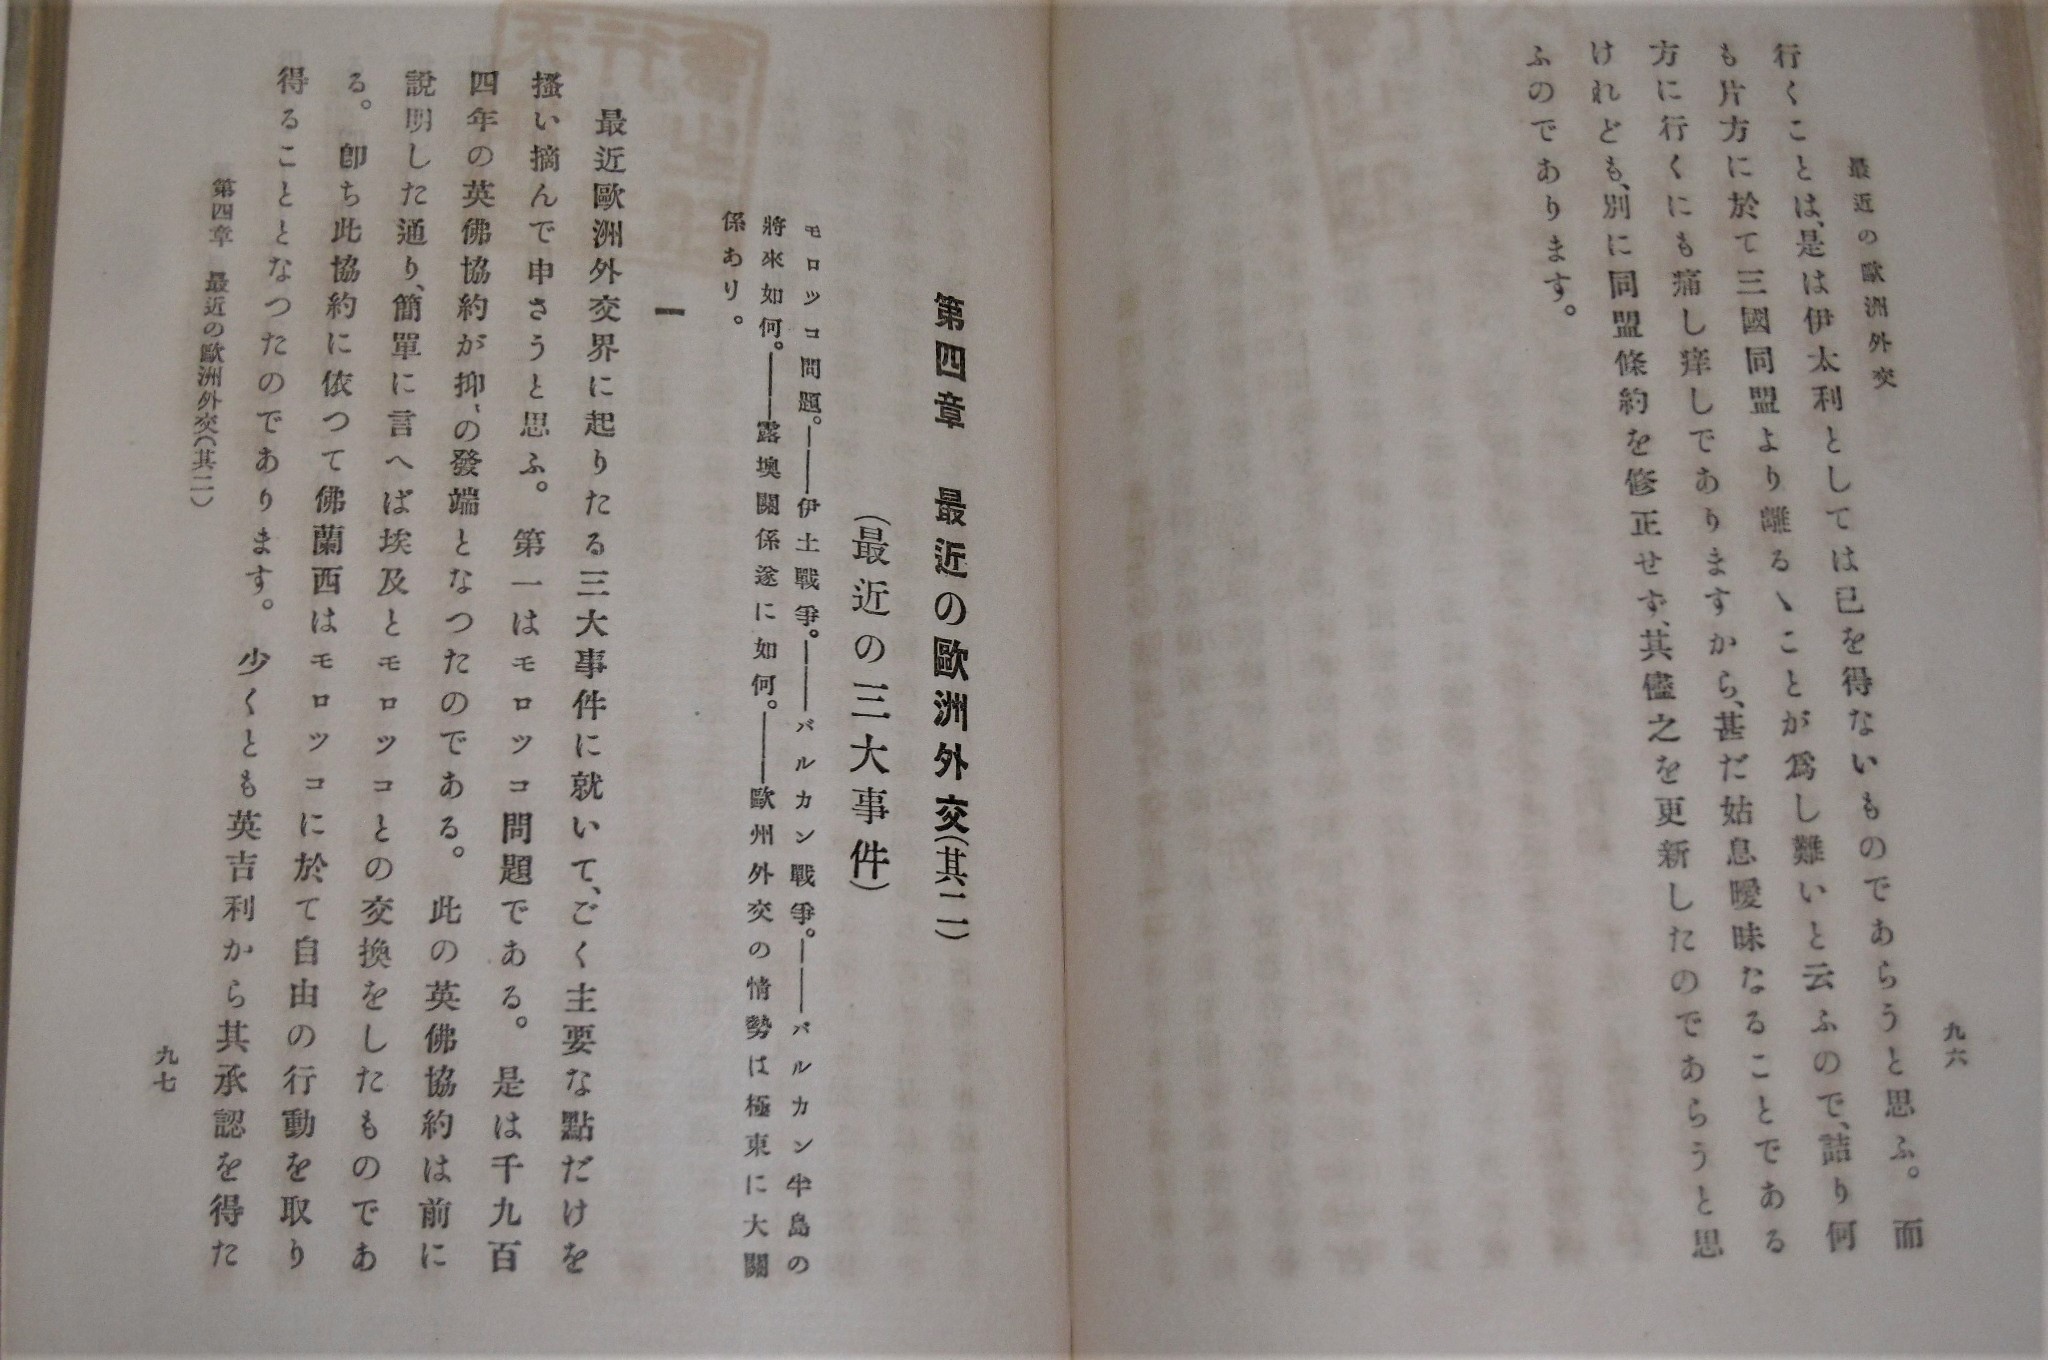 最近の歐洲外交
九六
行くことは、是は伊太利としては已を得ないものであらうと思ふ。而
も片方に於て三國同盟より離るゝことが爲し難いと云ふので、詰り何
方に行くにも痛し痒しでありますから、甚だ姑息曖昧なることである
けれども、別に同盟條約を修正せず、其儘之を更新したのであらうと思
ふのであります。
第四章 最近の歐洲外交(其二)
(最近の三大事件)
モロッコ問題。――伊土戰爭。――バルカン戰爭。――バルカン半島の
將來如何。――露墺關係遂に如何。――歐州外交の情勢は極東に大關
係あり。
一
最近歐洲外交界に起りたる三大事件に就いて、ごく主要な點だけを
搔い摘んで申さうと思ふ。第一はモロッコ問題である。是は千九百
四年の英佛協約が抑ゝの發端となつたのである。此の英佛協約は前に
說明した通り、簡單に言へば埃及とモロッコとの交換をしたものであ
る。卽ち此協約に依つて佛蘭西はモロッコに於て自由の行動を取り
得ることとなつたのであります。少くとも英吉利から其承認を得た
第四章 最近の歐洲外交(其二)
九七